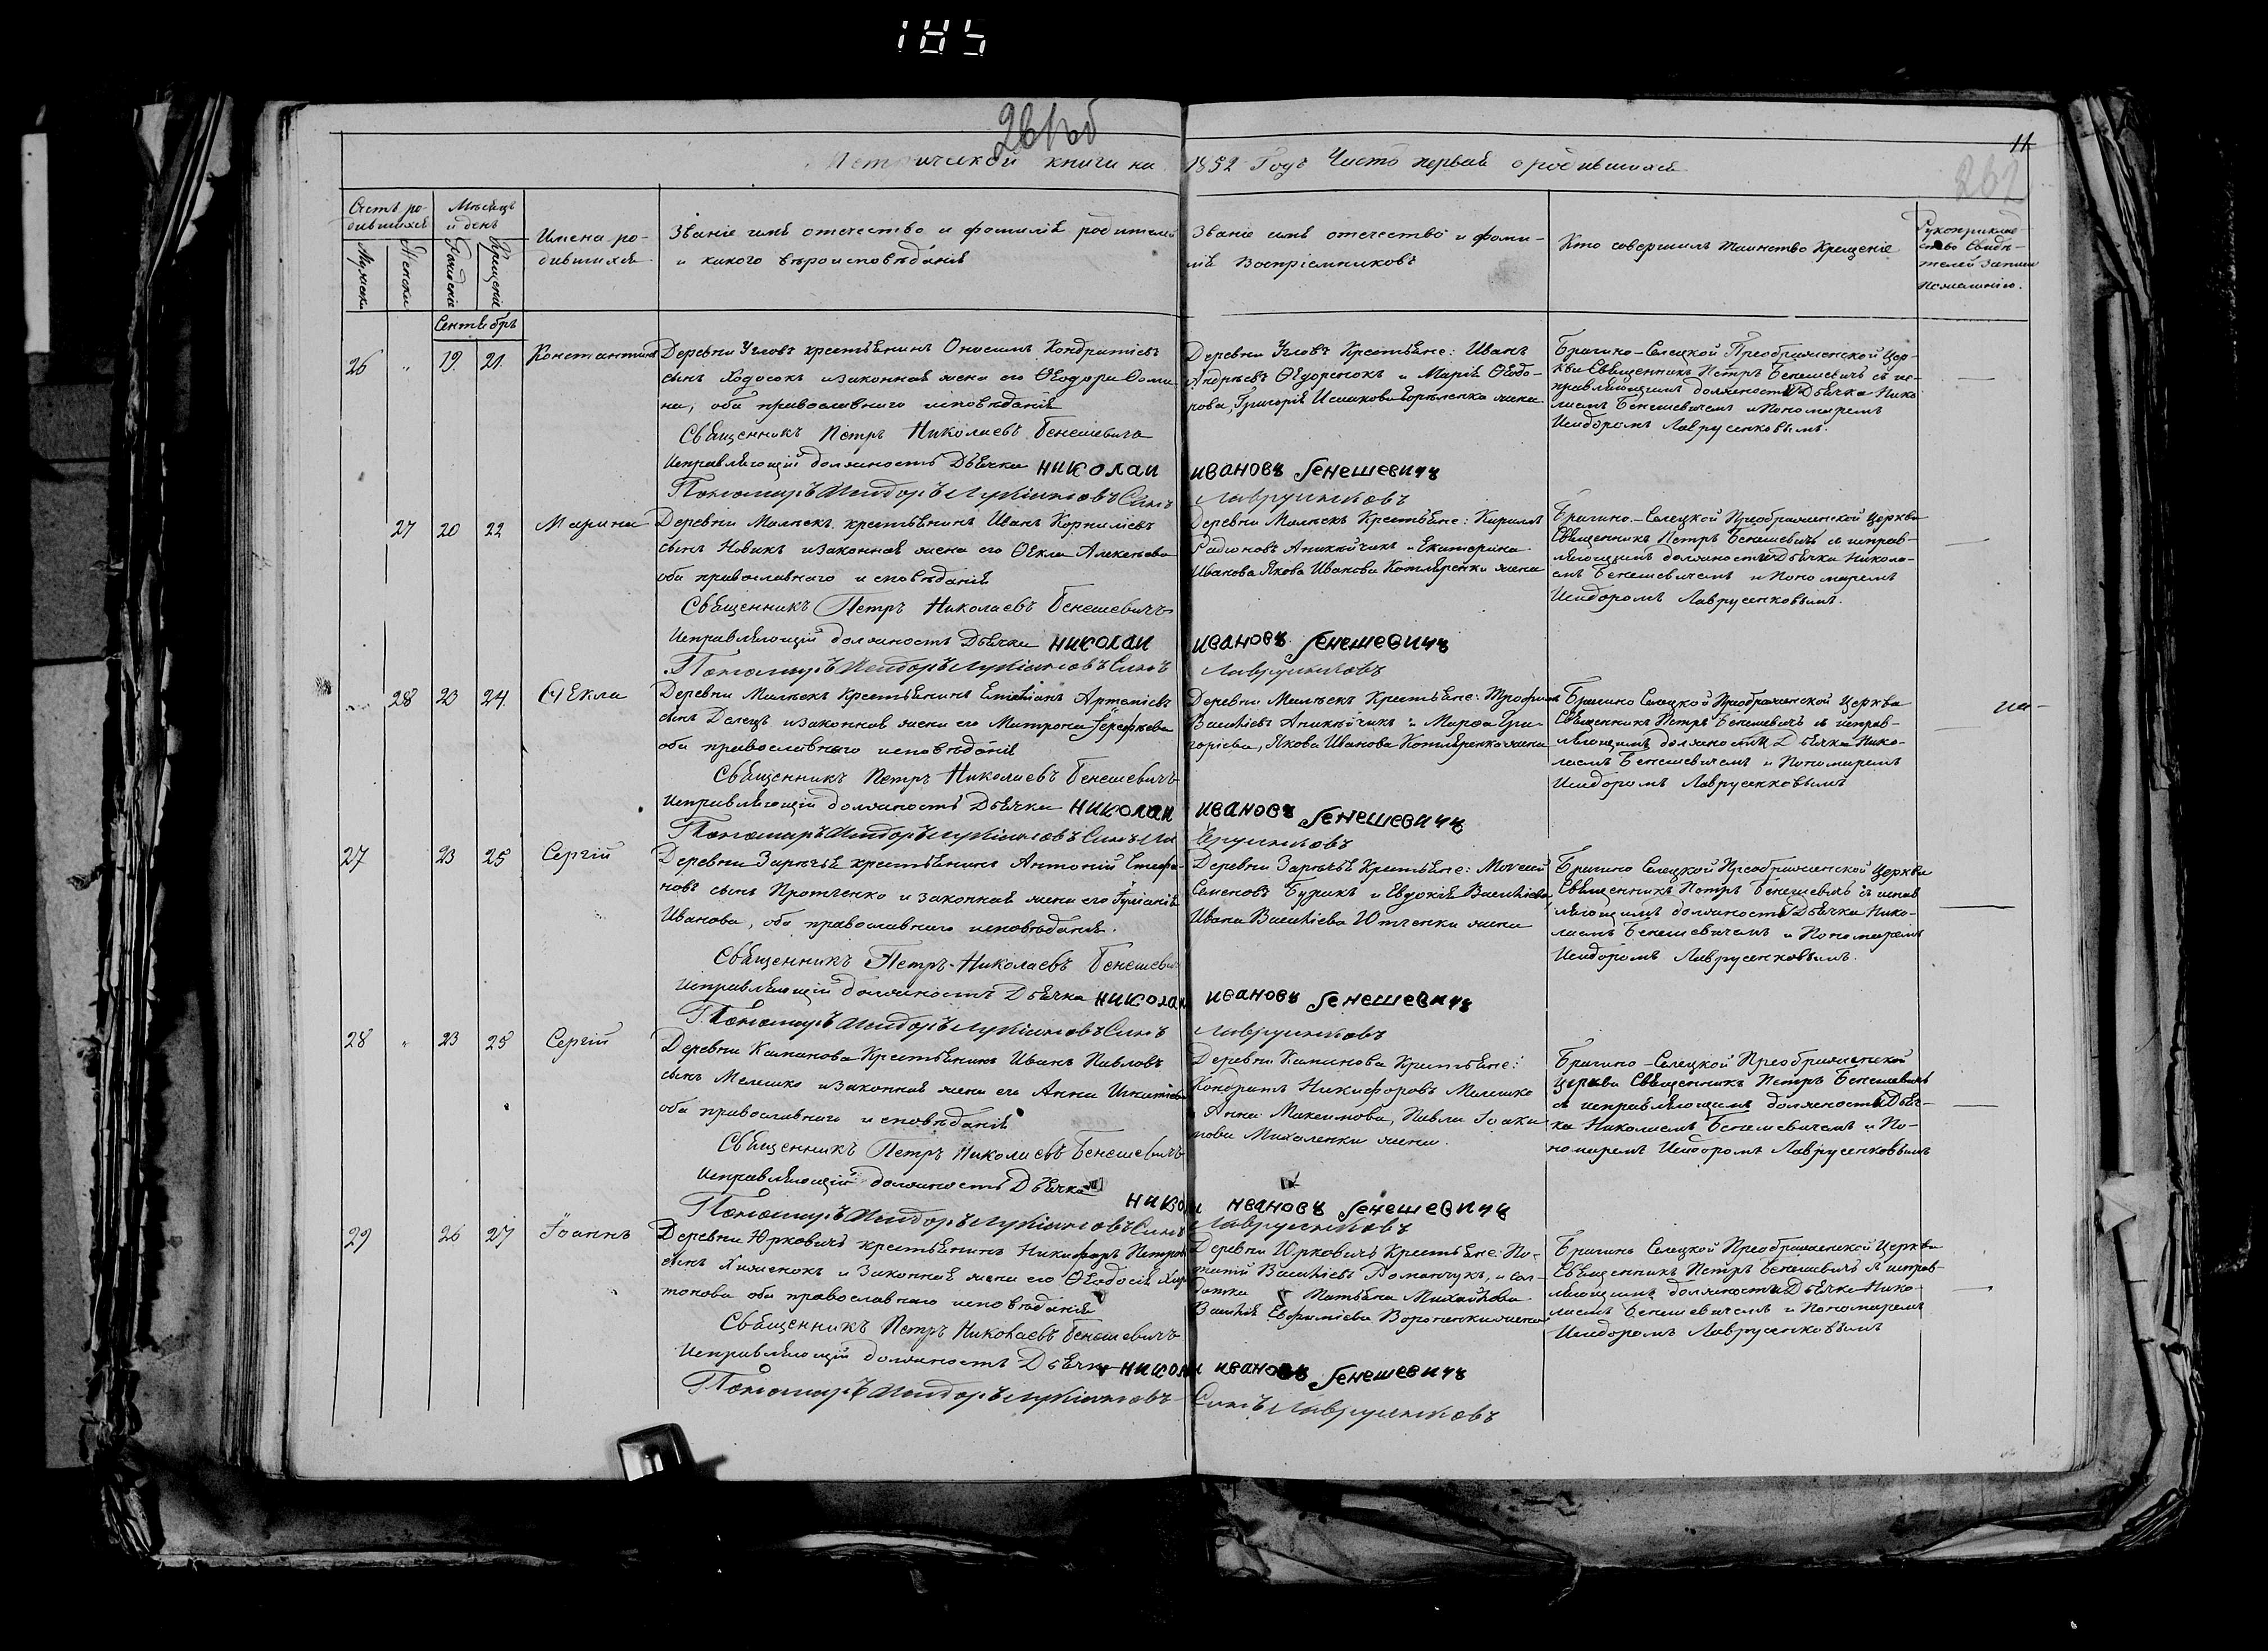 185
261об
11
Метрической книги на 1852 Годъ Часть первая о родившихся
Счетъ ро-
дившихся
Мѣсяцъ
и день
Имена ро-
дившихся
Званіе имя отечество и фамилія родителей
и какого вѣроисповѣданія
Званіе имя отечество и фами-
лія Воспріемниковъ
Кто совершилъ таинство Крещенія
Рукоприклад-
ство Свидѣ-
телей записи
по желанію.
Мужеска
Женска
Рожденія
Крещенія
Сентябрь
26 " 19. 21. Константинъ
Деревни Угловъ крестьянинъ Онисимъ Кондратіевъ
сынъ Ходосокъ и законная жена его Ѳеодора Ѳоми-
на, оба православнаго исповѣданія
Священникъ Петръ Николаевъ Бенешевичъ
Исправляющій должность Дьячка николаи ивановъ бенешевичъ
Пономарь Исидоръ Лукіановъ Сынъ Лавруеннковъ
Деревни Угловъ Крестьяне: Иванъ
Андреевъ Ѳедоренокъ и Марія Ѳеодо-
рова, Григорія Исакова жена
Брагино-Селецкой Преображенской Цер-
кви Священникъ Петръ Бенешевичъ съ ис-
правляющимъ должность Дьячка Нико-
лаемъ Бенешевичемъ и Пономаремъ
Исидоромъ Лаврусенковымъ.
27 20 22 Марина
Деревни Малѣекъ крестьянинъ Иванъ Корниліевъ
сынъ Новикъ и законная жена его Ѳекла Алексѣева
оба православнаго исповѣданія
Священникъ Петръ Николаевъ Бенешевичъ
Исправляющій должность Дьячка николаи ивановъ бенешевичъ
Пономарь Исидоръ Лукіановъ Сынъ Лавруеннковъ
Деревни Малѣекъ Крестьяне: Кирилъ
Радионовъ Аникѣйчикъ и Екатерина
Иванова Якова Иванова Котляренка жена
Брагино-Селецкой Преображенской Церкви
Священникъ Петръ Бенешевичъ съ исправ-
ляющимъ должность Дьячка Никола-
емъ Бенешевичемъ и Пономаремъ
Исидоромъ Лаврусенковымъ.
28 23 24. Ѳекла
Деревни Малѣекъ Крестьянинъ Емеліанъ Артеміевъ
сынъ Далецъ и законная жена его Матрона
оба православнаго исповѣданія
Священникъ Петръ Николаевъ Бенешевичъ
Исправляющій должность Дьячка николаи ивановъ бенешевичъ
Пономарь Исидоръ Лукіановъ Сынъ Лавруеннковъ
Деревни Малѣекъ Крестьяне: Трофимъ
Василіевъ Аникѣйчикъ и Марѳа Гри-
горіева, Якова Иванова Котляренка жена
Брагино Селецкой Преображенской Церкви
Священникъ Петръ Бенешевичъ съ исправ-
ляющимъ должность Дьячка Нико-
лаемъ Бенешевичемъ и Пономаремъ
Исидоромъ Лаврусенковымъ
27 23 25 Сергій
Деревни Зарѣчья крестьянинъ Антоній Стефа-
новъ сынъ Протченко и законная жена его Іуліанія
Иванова, оба православнаго исповѣданія.
Священникъ Петръ Николаевъ Бенешевичъ
Исправляющій должность Дьячка николаи ивановъ бенешевичъ
Пономарь Исидоръ Лукіановъ Сынъ Лавруеннковъ
Деревни Зарѣчья Крестьяне: Моисей
Семеновъ Бурикъ и Евдокія Василіева
Ивана Василіева Ютченка жена
Брагино Селецкой Преображенской Церкви
Священникъ Петръ Бенешевичъ съ исправ-
ляющимъ должность Дьячка Нико-
лаемъ Бенешевичемъ и Пономаремъ
Исидоромъ Лаврусенковымъ.
28 " 23 25 Сергій
Деревни Каманова Крестьянинъ Иванъ Павловъ
сынъ Мелешко и законная жена его Анна Игнатіева
оба православнаго исповѣданія
Священникъ Петръ Николаевъ Бенешевичъ
Исправляющій должность Дьячка николаи ивановъ бенешевичъ
Пономарь Исидоръ Лукіановъ Сынъ Лавруеннковъ
Деревни Каманова Крестьяне:
Кондратъ Никифоровъ Мелешко
и Анна Максимова, Павла Іоаки-
мова Михаленки жена.
Брагино-Селецкой Преображенской
Церкви Священникъ Петръ Бенешевичъ
съ исправляющимъ должность Дьяч-
ка Николаемъ Бенешевичемъ и По-
номаремъ Исидоромъ Лаврусенковымъ
29 26 27 Іоаннъ
Деревни Юрковичъ крестьянинъ Никифоръ Петровъ
сынъ Хиженокъ и Законная жена его Ѳеодосія Хари-
тонова оба православнаго исповѣданія
Священникъ Петръ Николаевъ Бенешевичъ
Исправляющій должность Дьячка николаи ивановъ бенешевичъ
Пономарь Исидоръ Лукіановъ Сынъ Лавруеннковъ
Деревни Юрковичъ Крестьяне: По-
тапій Василіевъ Романчукъ, и сол-
датка Татьяна Михайлова
Василія Евфиміева Вороненки жена
Брагино Селецкой Преображенской Церкви
Священникъ Петръ Бенешевичъ съ исправ-
ляющимъ должность Дьячка Нико-
лаемъ Бенешевичемъ и Пономаремъ
Исидоромъ Лаврусенковымъ